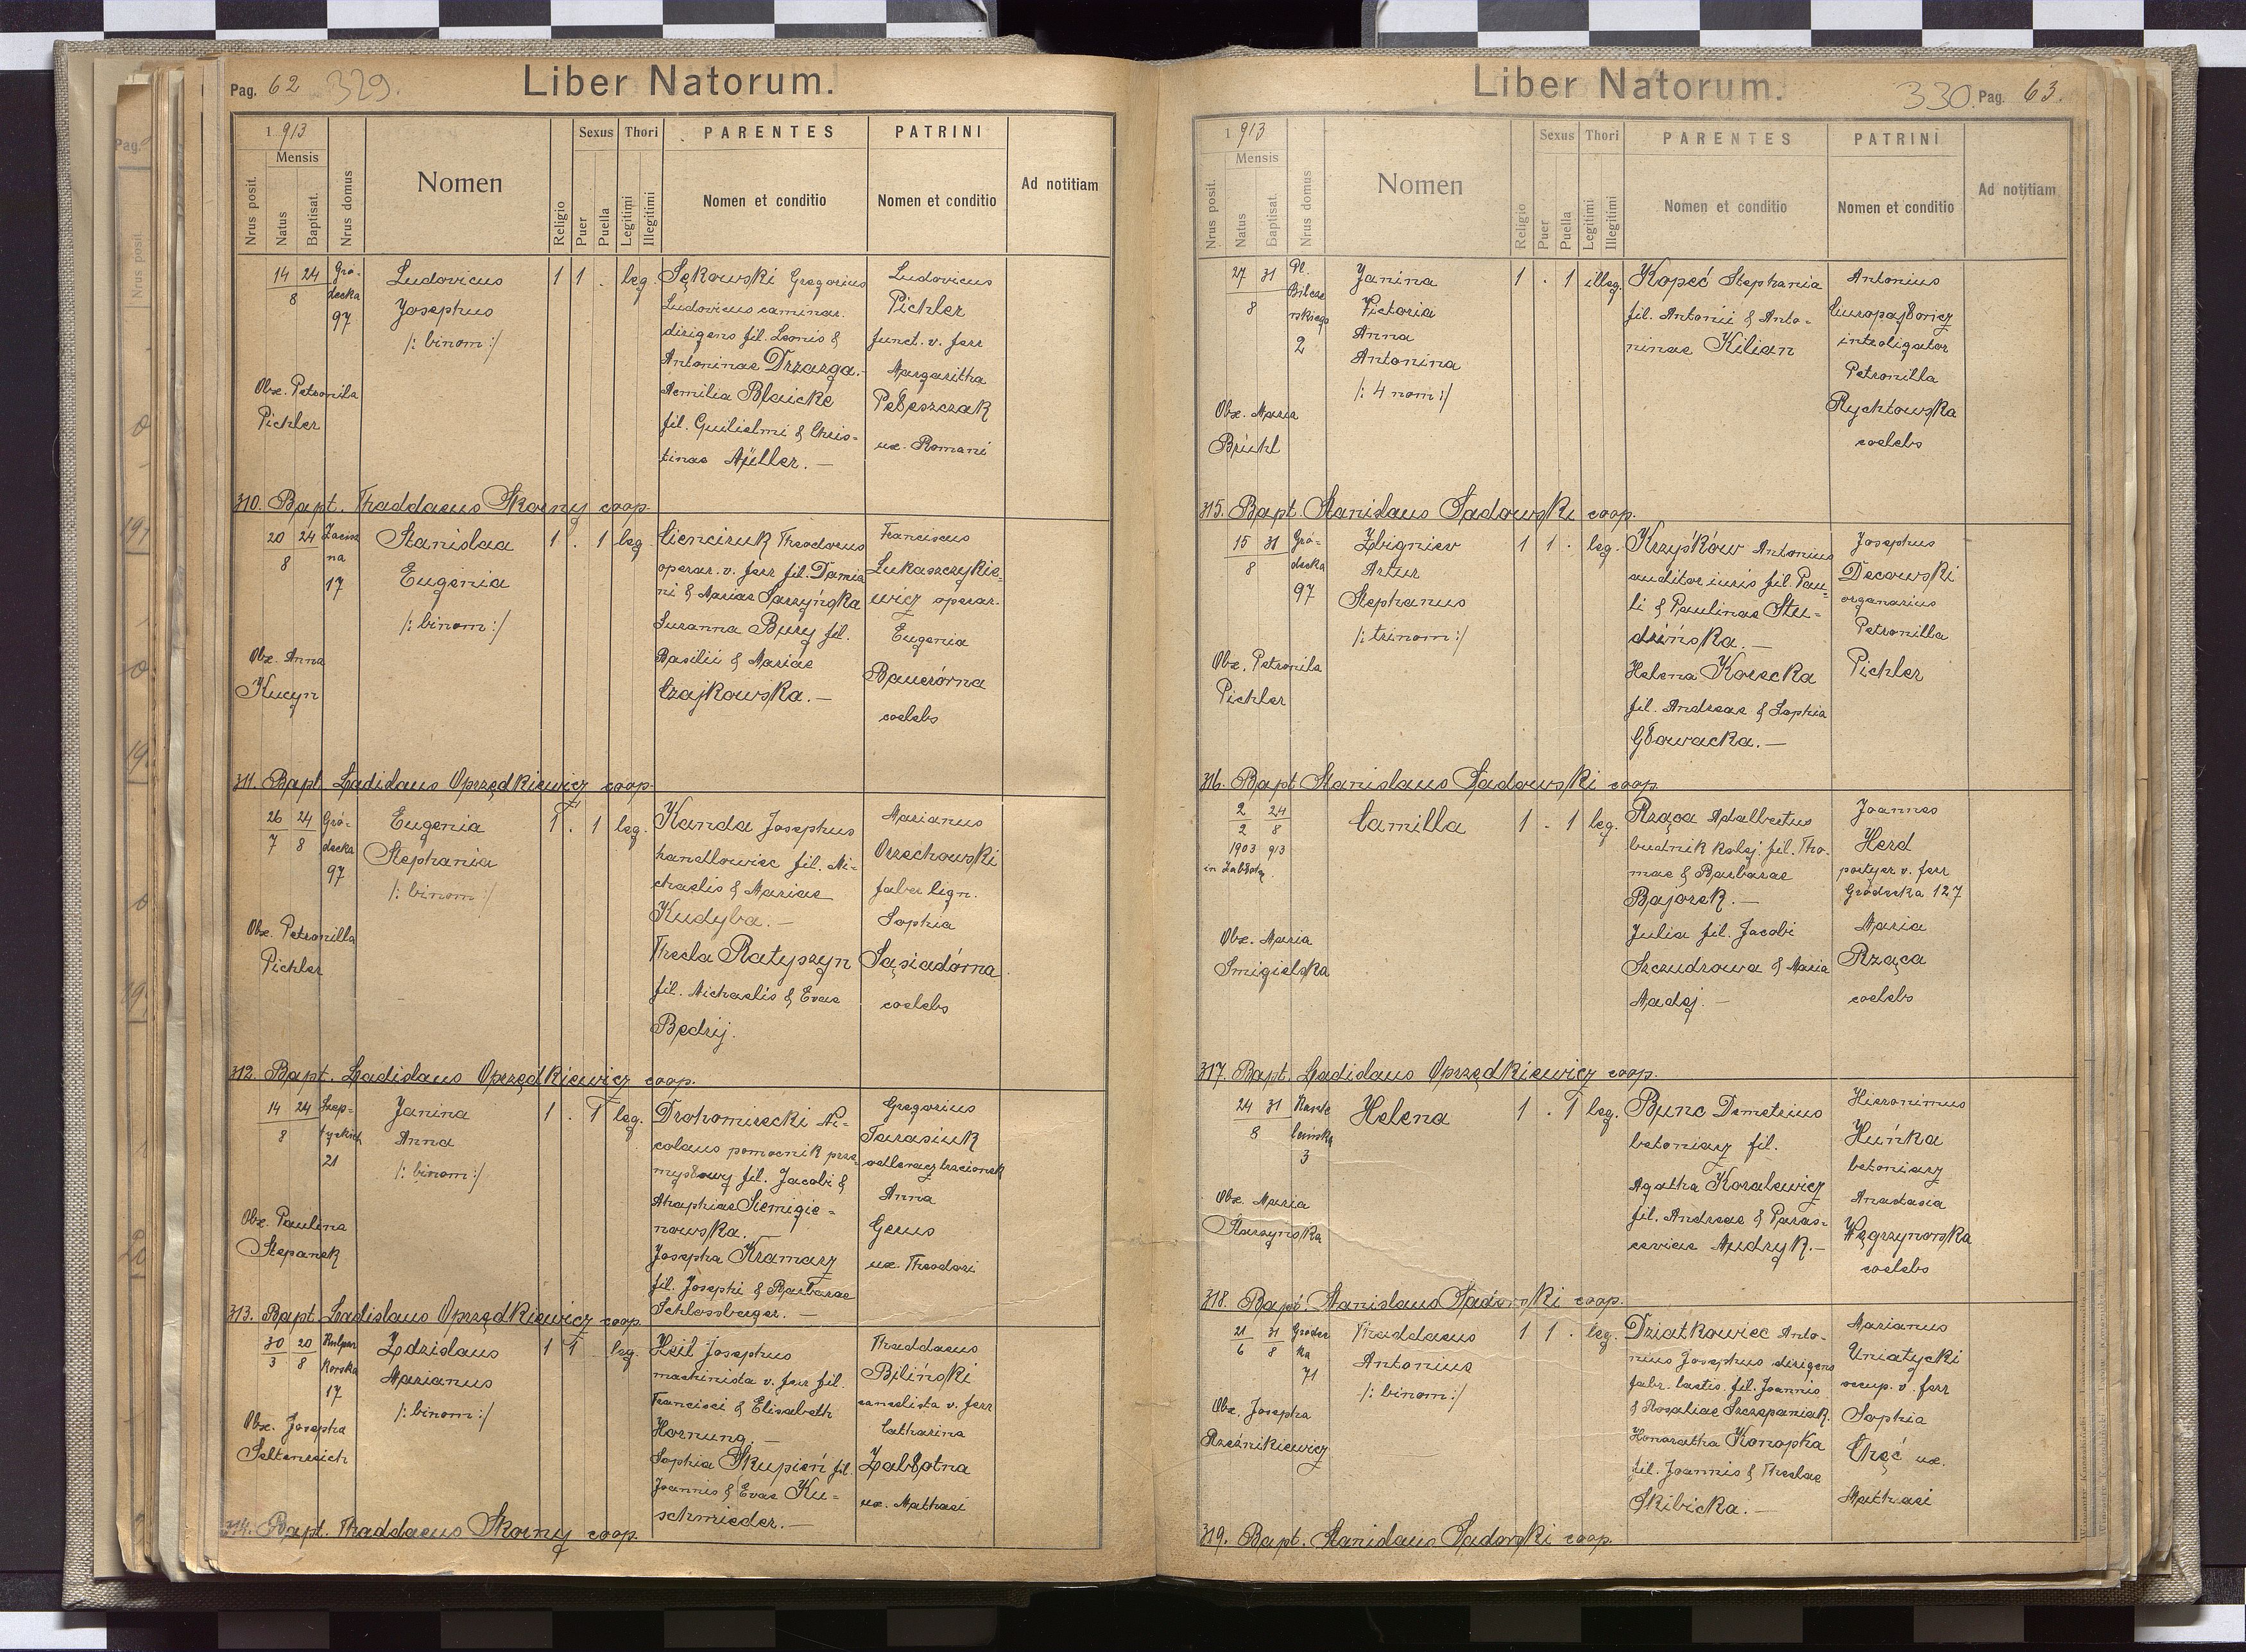 Pag. 62 329.
Liber Natorum.
1 913
Mensis
Nrus posit.
Natus
Baptisat.
Nrus domus
Nomen
Religio
Sexus
Puer
Puella
Thori
Legitimi
Illegitimi
PARENTES
Nomen et conditio
PATRINI
Nomen et conditio
Ad notitiam
14 24
8
Gró-
decka
97
Obx. Petronila
Pichler
Ludovicus
Josephus
/: binom :/
1 1 . leg.
Sękowski Gregorius
Ludovicus caminar.
dirigens fil. Leonis &
Antoninae Drzazga.-
Aemilia Blaicke
fil. Guilielmi & Chris-
tinae Müller. —
Ludovicus
Pichler
funct. v. ferr
Margaritha
Pełeszczak
ux. Romani
310. Bapt. Thaddaeus Skorny coop.
20 24
8
17
Obx. Anna
Kucyn
Stanislaa
Eugenia
/: binom :/
1 . 1 leg.
Cienciruk Theodorus
operar. v. ferr fil. Damia
ni & Mariae Sarzyńska
Susanna Bury fil.
Basilii & Mariae
Czajkowska. —
Franciscus
Łukaszczykie-
wicz operar.
Eugenia
Bauerórna
coelebs
311. Bapt. Ladislaus Oprzędkiewicz coop.
26 24
7 8
Gró-
decka
97
Obx. Petronilla
Pichler
Eugenia
Stephania
/: binom :/
1 . 1 leg.
Kanda Josephus
handlowiec fil. Mi-
chaelis & Mariae
Kudyba. —
Thecla Ratyszyn
fil. Michaelis & Evae
Bedrij.
Marianus
Orzechowski
faber lign.
Sophia
Sąsiadórna
coelebs
312. Bapt. Ladislaus Oprzędkiewicz coop.
14 24
8
Szep-
tyckich
21
Obx. Paulina
Stepanek
Janina
Anna
/: binom :/
1 . 1 leg.
Drohomirecki Ni-
colaus pomocnik prze-
mysłowy fil. Jacobi &
Ahaphiae Siemigie-
nowska. —
Josepha Kramarz
fil. Josephi & Barbarae
Schlossberger. —
Gregorius
Tarasiuk
Anna
Gerus
ux. Theodori
313. Bapt. Ladislaus Oprzędkiewicz coop.
30 20
3 8
Kulpar
kowska
17
Obx. Josepha
Seltenreich
Zdzislaus
Marianus
/: binom :/
1 1 leg.
Heil Josephus
machinista v. ferr fil.
Francisci & Elisabeth
Hornung. —
Sophia Skupień fil.
Joannis & Evae Ku-
schmieder. —
Thaddaeus
Biliński
cancelista v. ferr
Catharina
Zabłotna
ux. Mathaei
314. Bapt. Thaddaeus Skorny coop.
Liber Natorum.
330 Pag. 63.
1 913
Mensis
Nrus posit.
Natus
Baptisat.
Nrus domus
Nomen
Religio
Sexus
Puer
Puella
Thori
Legitimi
Illegitimi
PARENTES
Nomen et conditio
PATRINI
Nomen et conditio
Ad notitiam
27 31
8
Pl.
Bilcze
wskiego
2
Obx. Maria
Brühl
Janina
Victoria
Anna
Antonina
/: 4 nom :/
1 . 1 illeg.
Kopeć Stephania
fil. Antonii & Anto-
ninae Kilian
Antonius
introligator
Petronilla
Rychtowska
coelebs
315. Bapt. Stanislaus Sadowski coop.
15 31
8
Gró-
decka
97
Obx. Petronila
Pichler
Zbigniev
Artur
Stephanus
/: trinom :/
1 1 . leg.
Krzyśków Antonius
auditor iuris fil. Pau-
li & Paulinae Stu-
dzińska. —
Helena Korecka
fil. Andreae & Sophia
Głowacka. —
Josephus
Decowski
organarius
Petronilla
Pichler
316. Bapt. Stanislaus Sadowski coop.
2 24
2 8
1903 913
Obx. Maria
Smigielska
Camilla
1 . 1 leg.
Rząca Adalbertus
budnik kolej. fil. Tho-
mae & Barbarae
Bajorek. —
Julia fil. Jacobi
Szczudrowa & Maria
Madej. —
Joannes
Herd
portyer v. ferr
Gródecka 127
Maria
Rząca
coelebs
317. Bapt. Ladislaus Oprzędkiewicz coop.
24 31
8
3
Obx. Maria
Starzynska
Helena
1 . 1 leg.
Bunc Demetrius
betoniarz fil.
Agatha Koralewicz
fil. Andreae & Paras-
ceviae Mudryk. —
Hieronimus
Huńka
betoniarz
Anastasia
Węgrzynowska
coelebs
318. Bapt. Stanislaus Sadowski coop.
21 31
6 8
Gródec
ka
71
Obx. Josepha
Rzeźnikiewicz
Thaddaeus
Antonius
/: binom :/
1 1 . leg.
Dziatkowiec Anto-
nius Josephus dirigens
fabr. lactis. fil. Joannis
& Rosaliae Szczepaniak.
Honoratha Konopka
fil. Joannis & Theclae
Skibicka. —
Marianus
Uniatycki
occup. v. ferr
Sophia
Chęć ux.
Mathaei
319. Bapt. Stanislaus Sadowski coop.